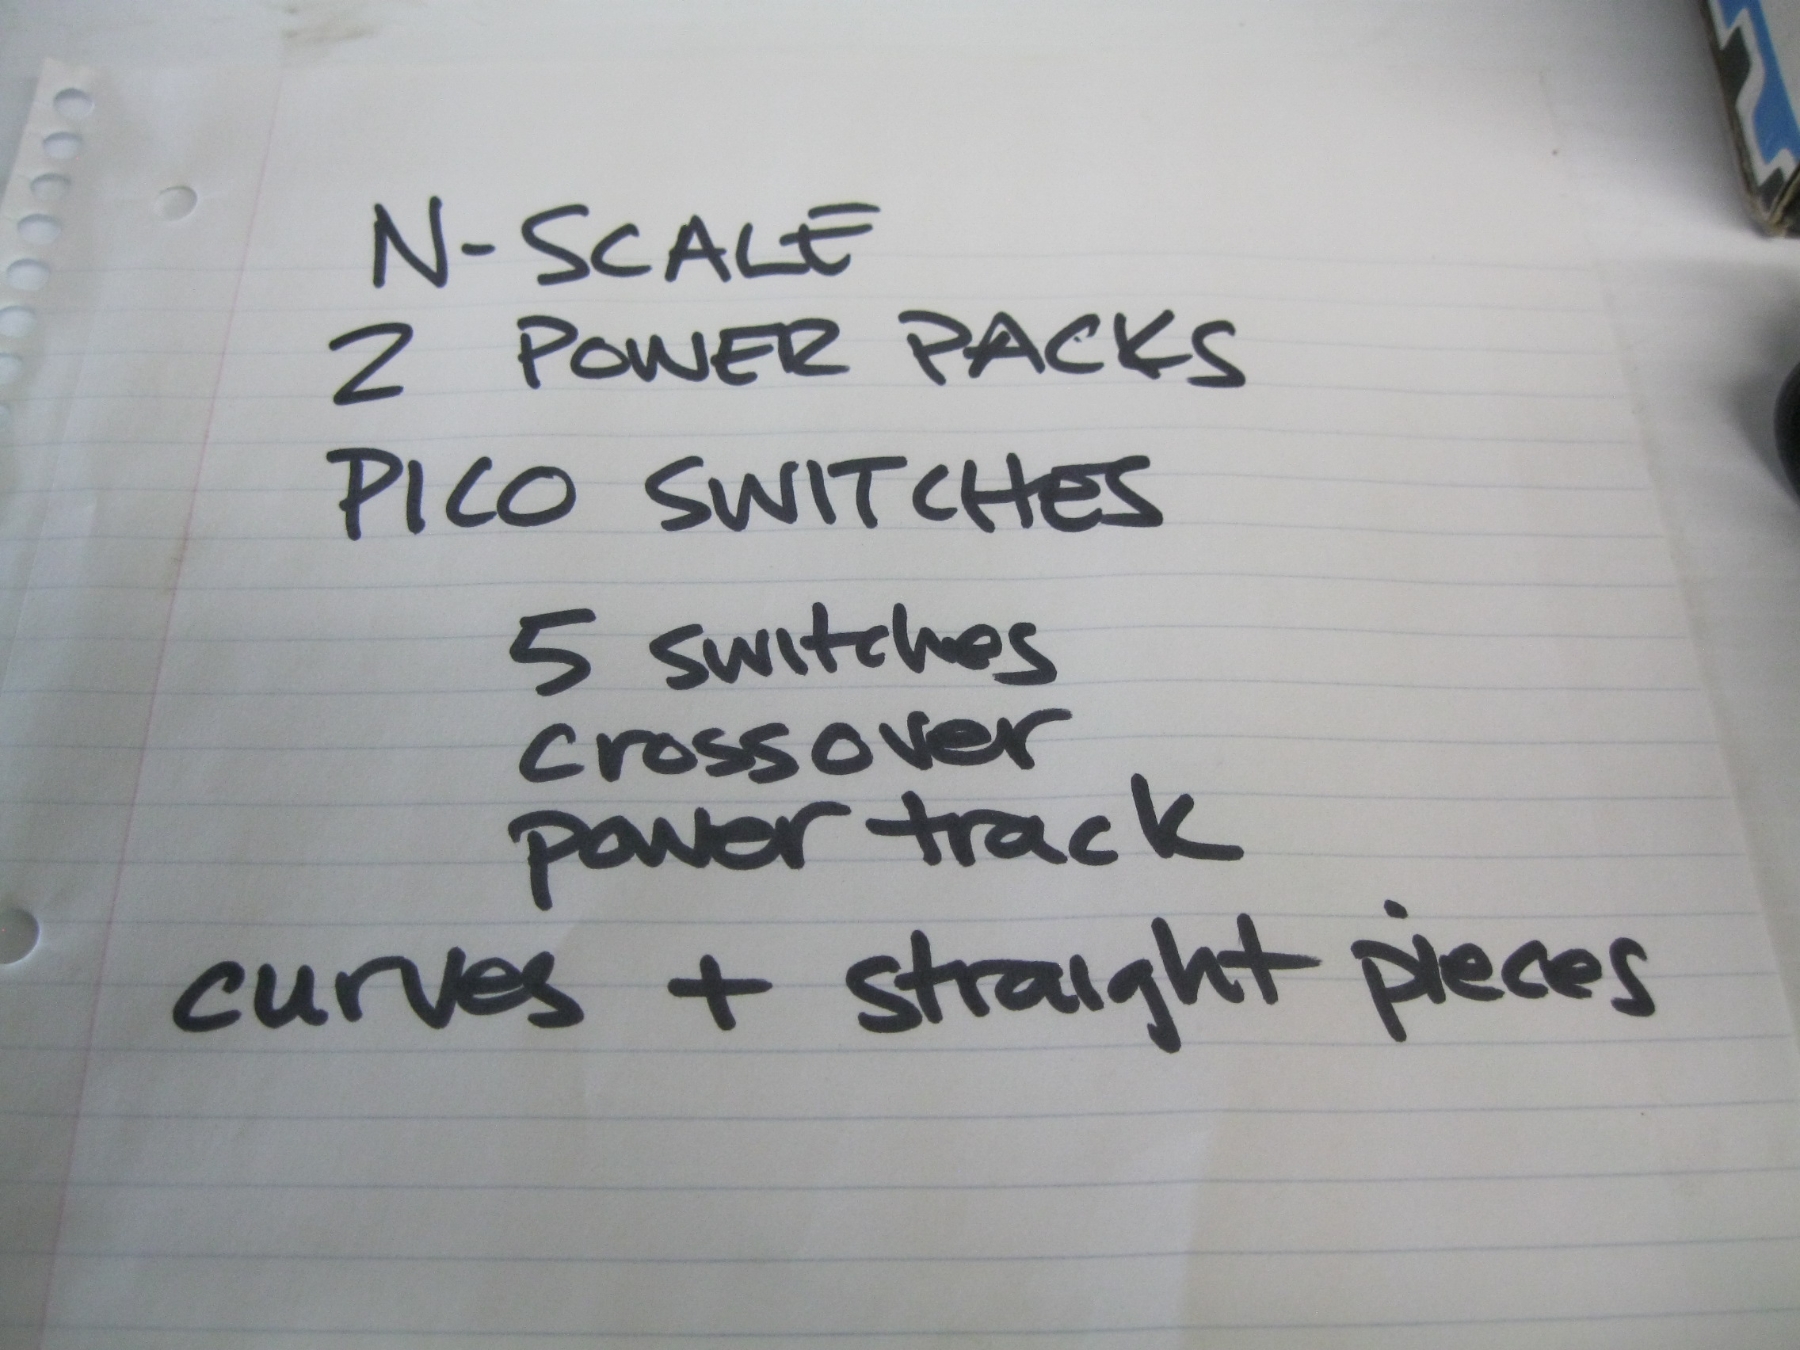 N-SCALE
2 POWER PACKS
PICO SWITCHES
5 switches
crossover
power track
curves + straight pieces